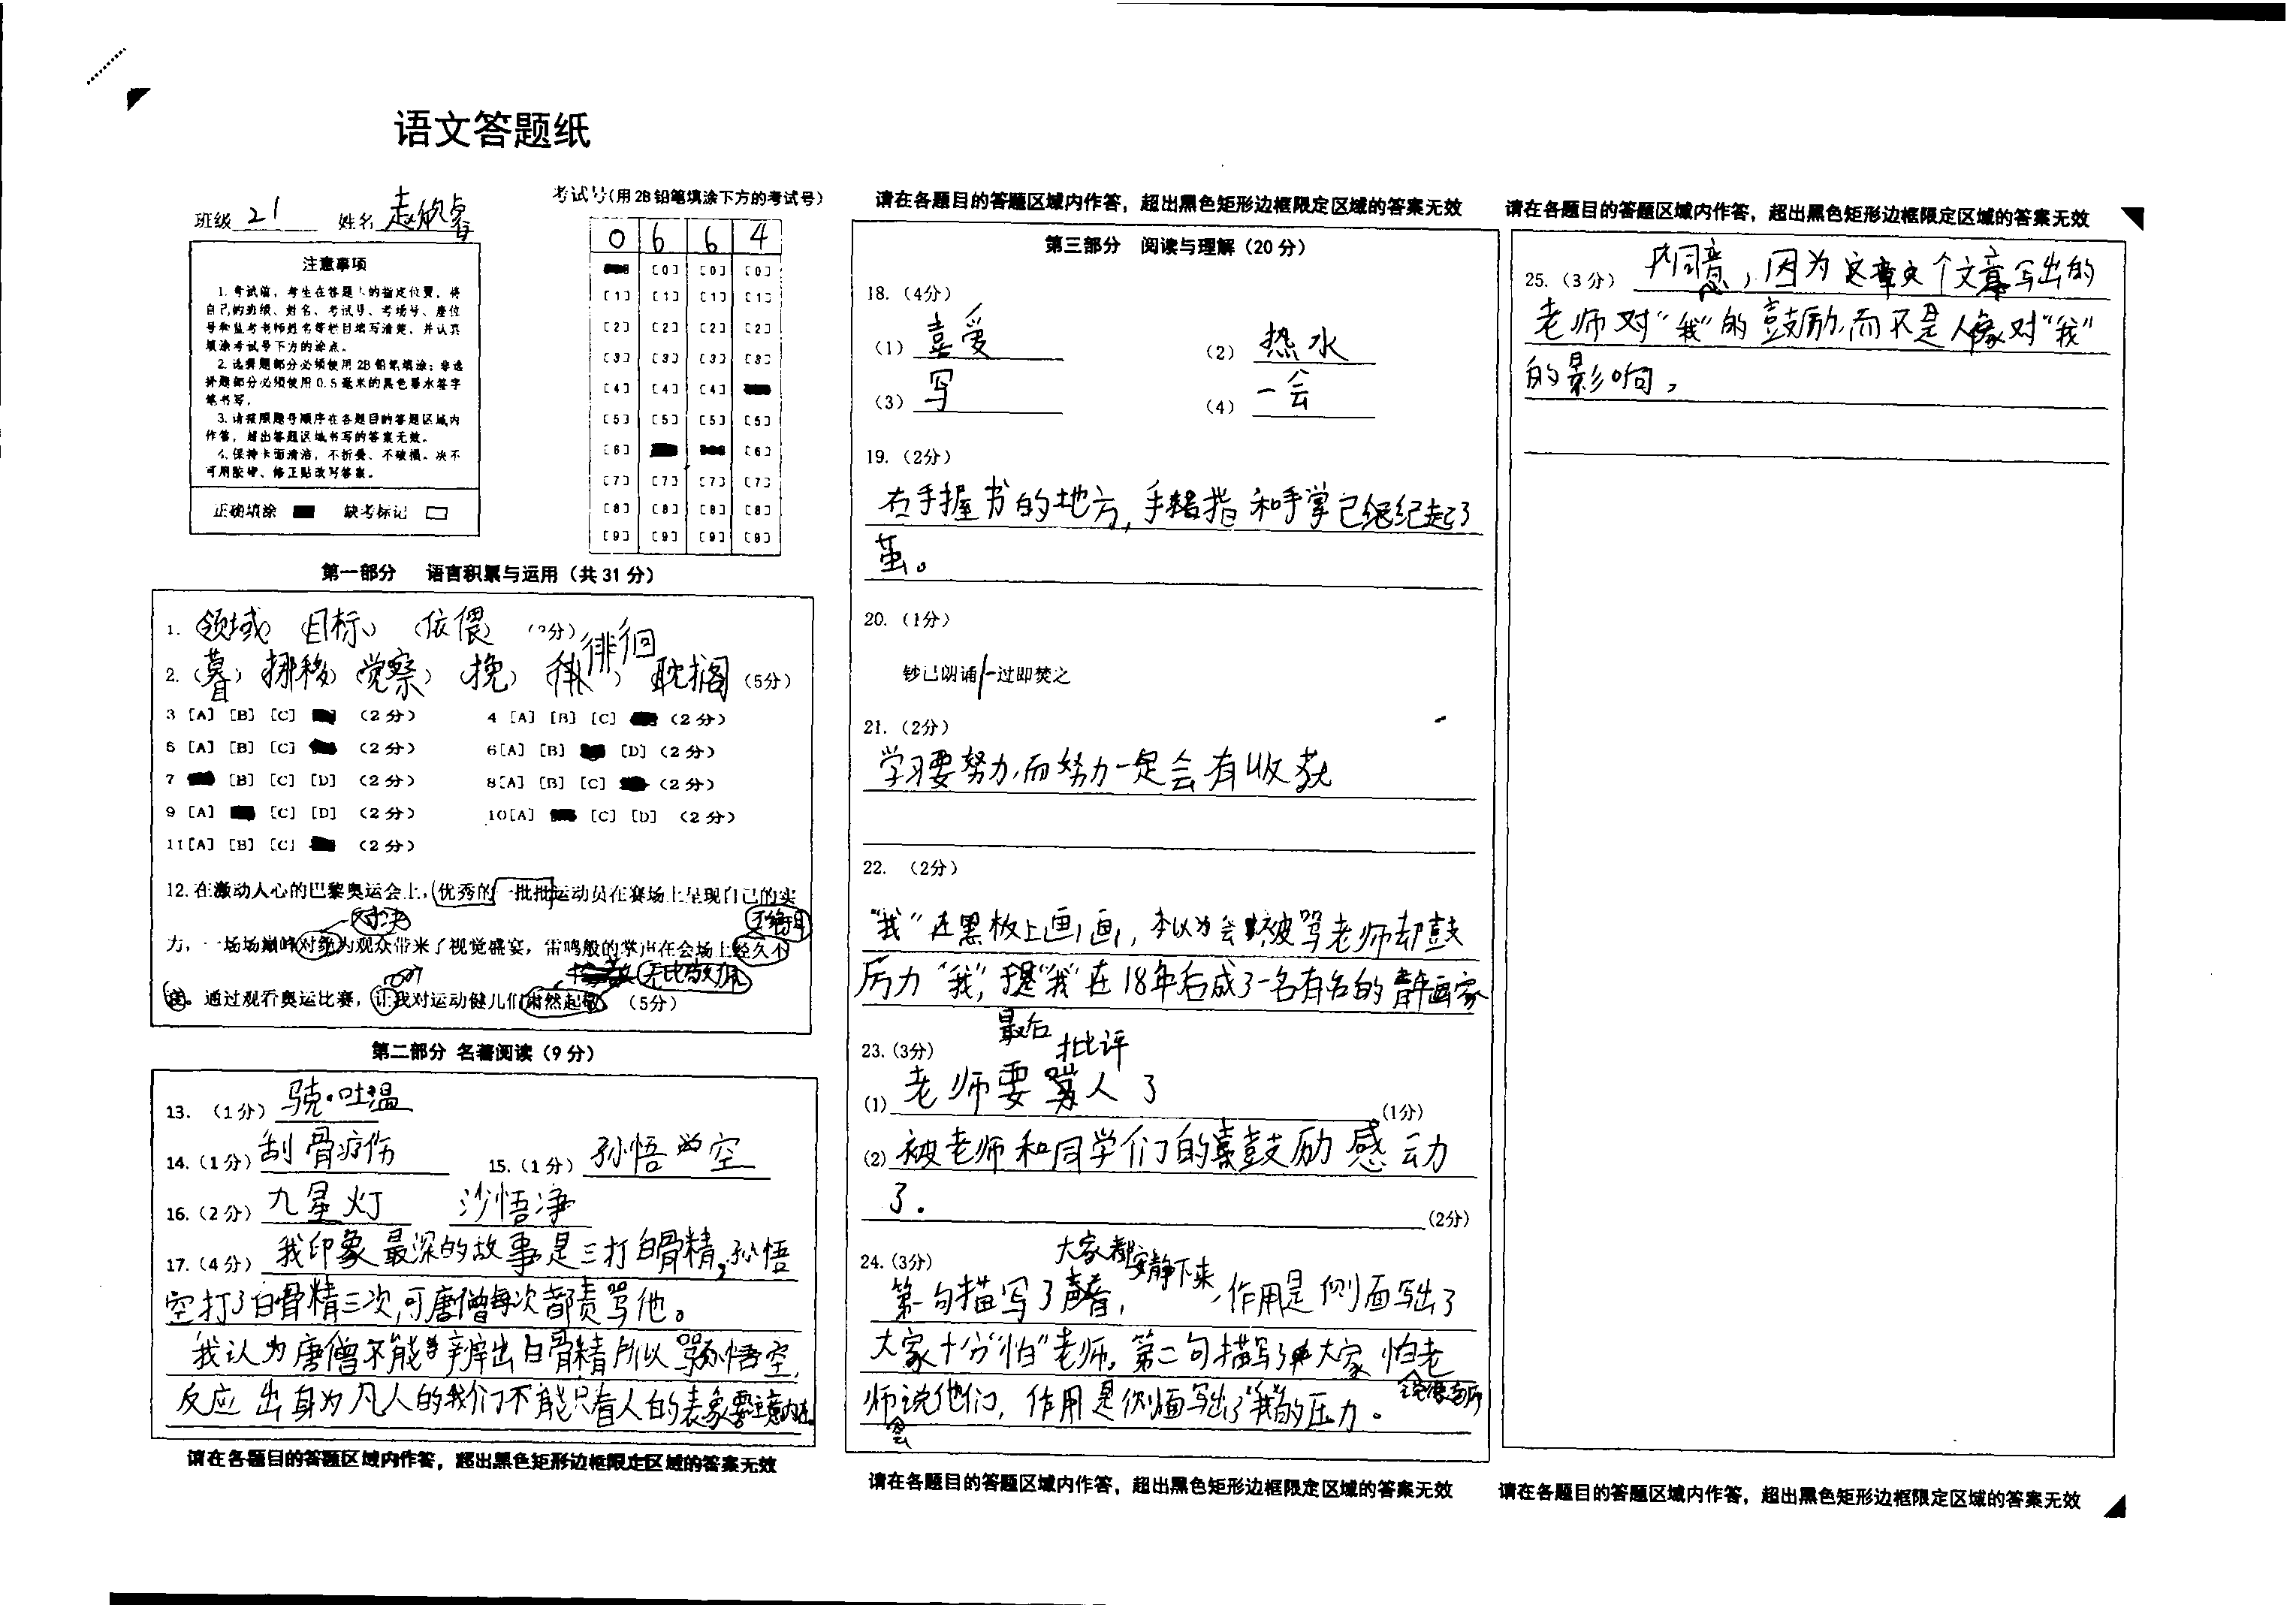 语文答题纸
班级 21 姓名
考试号(用2B铅笔填涂下方的考试号)
0 6 6 4
[0] [0] [0]
[1] [1] [1] [1]
[2] [2] [2] [2]
[3] [3] [3] [3]
[4] [4] [4]
[5] [5] [5] [5]
[6] [6]
[7] [7] [7] [7]
[8] [8] [8] [8]
[9] [9] [9] [9]
注意事项
1.考试前，考生在答题卡的指定位置，将
自己的班级、姓名、考试号、考场号、座位
号和监考老师姓名等栏目填写清楚，并认真
填涂考试号下方的涂点。
2.选择题部分必须使用2B铅笔填涂；非选
择题部分必须使用0.5毫米的黑色墨水签字
笔书写。
3.请按照题号顺序在各题目的答题区域内
作答，超出答题区域书写的答案无效。
4.保持卡面清洁，不折叠、不破损。决不
可用胶带、修正贴改写答案。
正确填涂 缺考标记
第一部分 语言积累与运用（共31分）
1. (领域) (目标) (依偎)
2. (暮) (挪移) (觉察) (挽) (徘徊) 耽搁 (5分)
3 [A] [B] [C] (2分) 4 [A] [B] [C] (2分)
5 [A] [B] [C] (2分) 6[A] [B] [D] (2分)
7 [B] [C] [D] (2分) 8[A] [B] [C] (2分)
9 [A] [C] [D] (2分) 10[A] [C] [D] (2分)
11[A] [B] [C] (2分)
12.在激动人心的巴黎奥运会上，优秀的一批批运动员在赛场上呈现自己的实
对决
力，一场场巅峰对绝为观众带来了视觉盛宴，雷鸣般的掌声在会场上经久不
通过观看奥运比赛，让我对运动健儿们肃然起敬 (5分)
第二部分 名著阅读（9分）
13. (1分) 骁·吐温
14. (1分) 刮骨疗伤 15. (1分) 孙悟空
16. (2分) 九星灯 沙悟净
17. (4分) 我印象最深的故事是三打白骨精，孙悟
空打了白骨精三次，可唐僧每次都责骂他。
我认为唐僧不能辨出白骨精所以骂孙悟空，
反应出身为凡人的我们不能只看人的表象要注意内在。
请在各题目的答题区域内作答，超出黑色矩形边框限定区域的答案无效
请在各题目的答题区域内作答，超出黑色矩形边框限定区域的答案无效
第三部分 阅读与理解（20分）
18. (4分)
(1) 喜爱 (2) 热水
(3) 写 (4) 一会
19. (2分)
右手握书的地方，手指和手掌已经纪起了
茧。
20. (1分)
钞已朗诵/一过即焚之
21. (2分)
学习要努力，而努力一定会有收获
22. (2分)
“我”在黑板上画画，本以为会被骂老师却鼓
厉力“我”，于是“我”在18年后成了一名有名的青年画家
最后
23. (3分)
批评
(1) 老师要骂人了 (1分)
(2) 被老师和同学们的鼓励感动
了. (2分)
24. (3分)
大家都安静下来
第一句描写了声音，作用是侧面写出了
大家十分“怕”老师。第二句描写了大家怕老
师说他们，作用是侧面写出了“我”的压力。
会
请在各题目的答题区域内作答，超出黑色矩形边框限定区域的答案无效
请在各题目的答题区域内作答，超出黑色矩形边框限定区域的答案无效
25. (3分) 不同意，因为这个文章写出的
老师对“我”的鼓励，而不是人像对“我”
的影响，
请在各题目的答题区域内作答，超出黑色矩形边框限定区域的答案无效